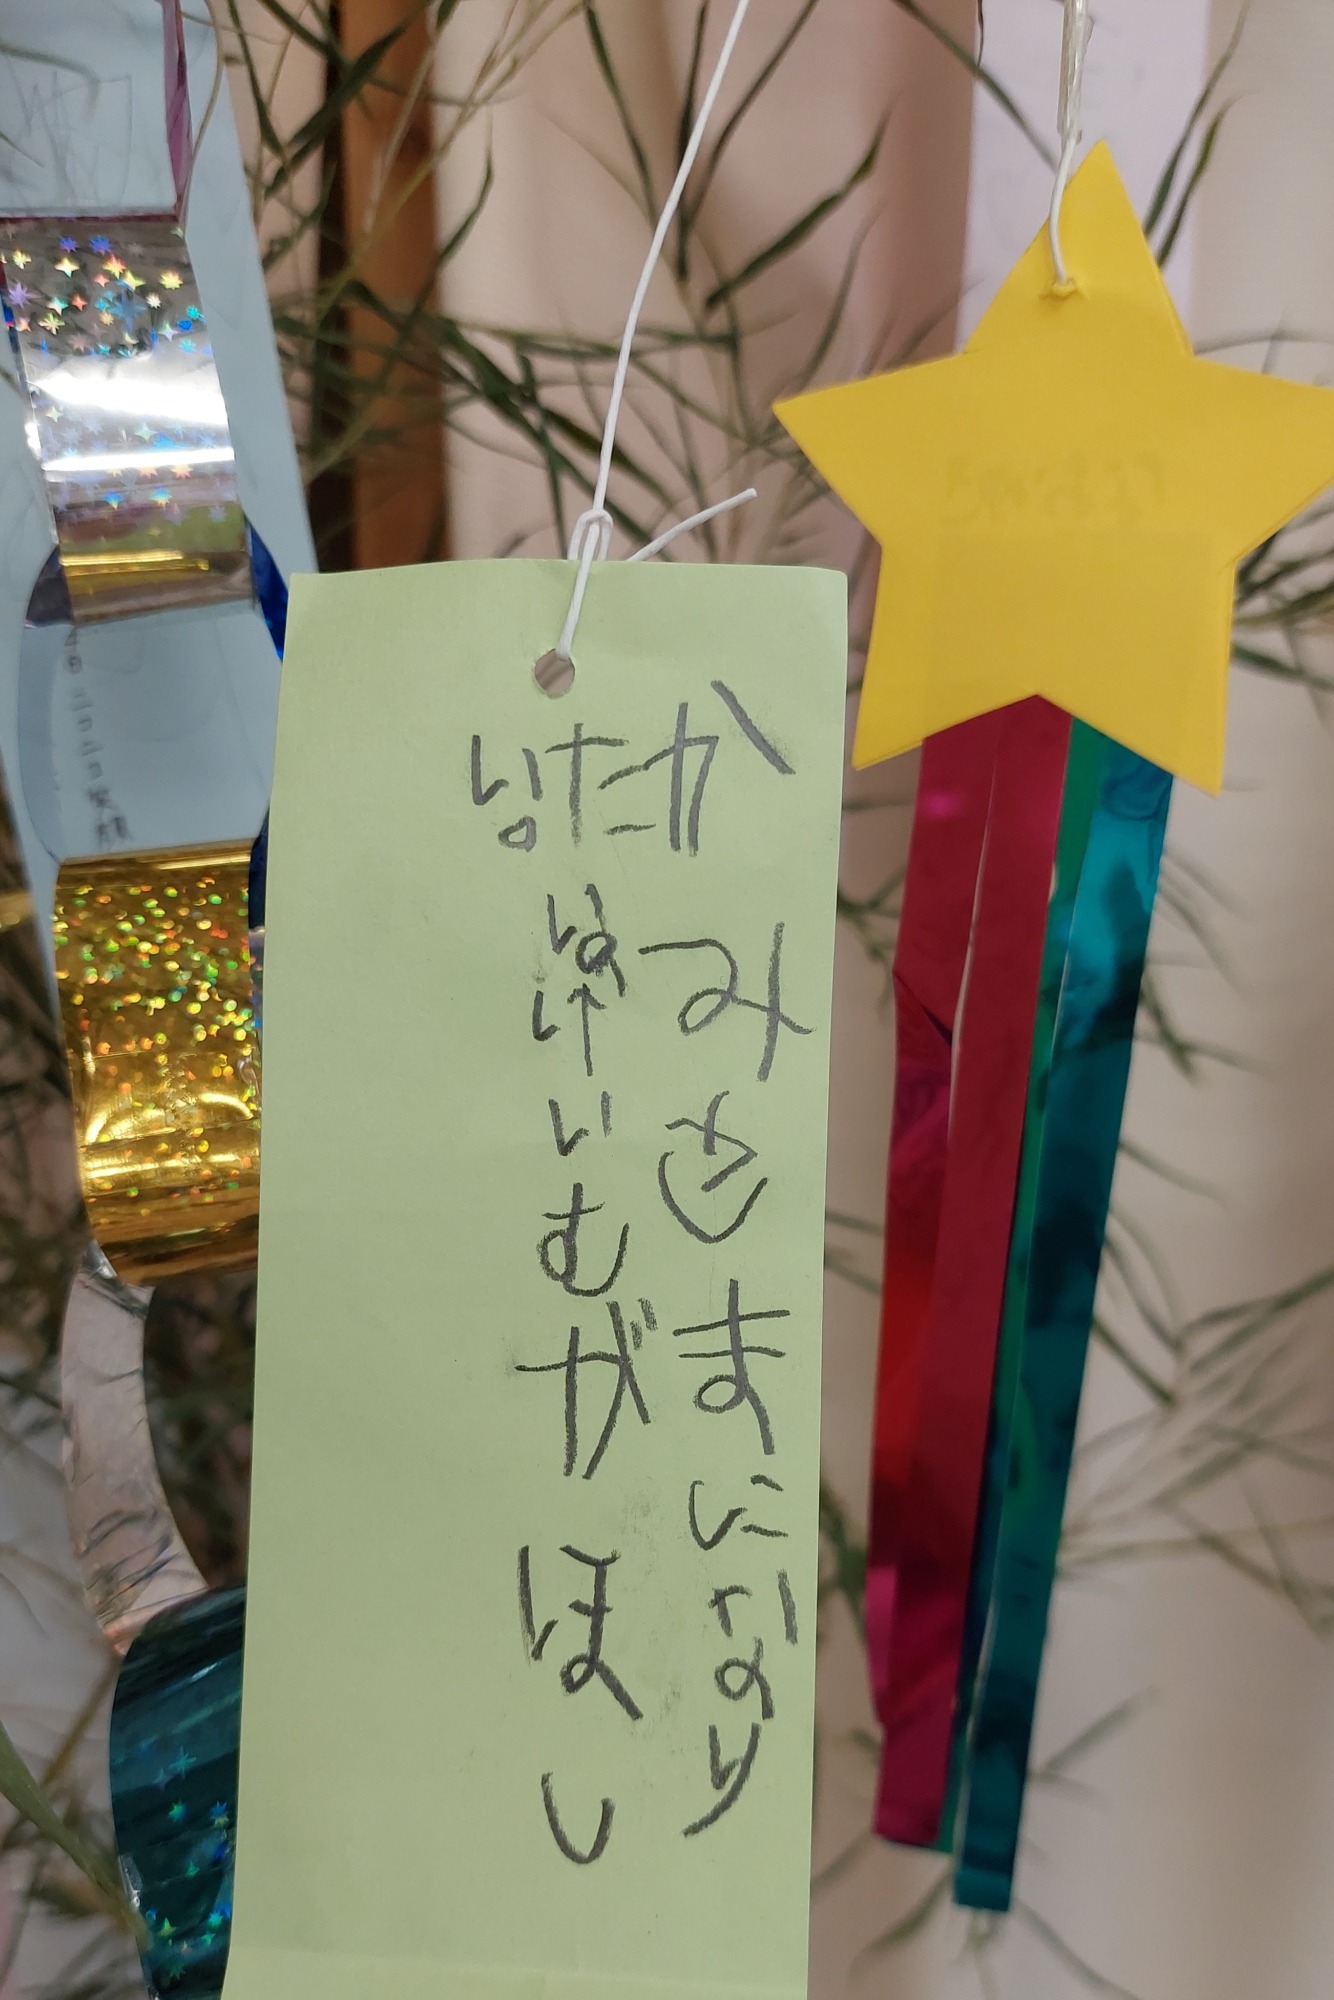 かみさまになり
たい。けいむがほし
い。